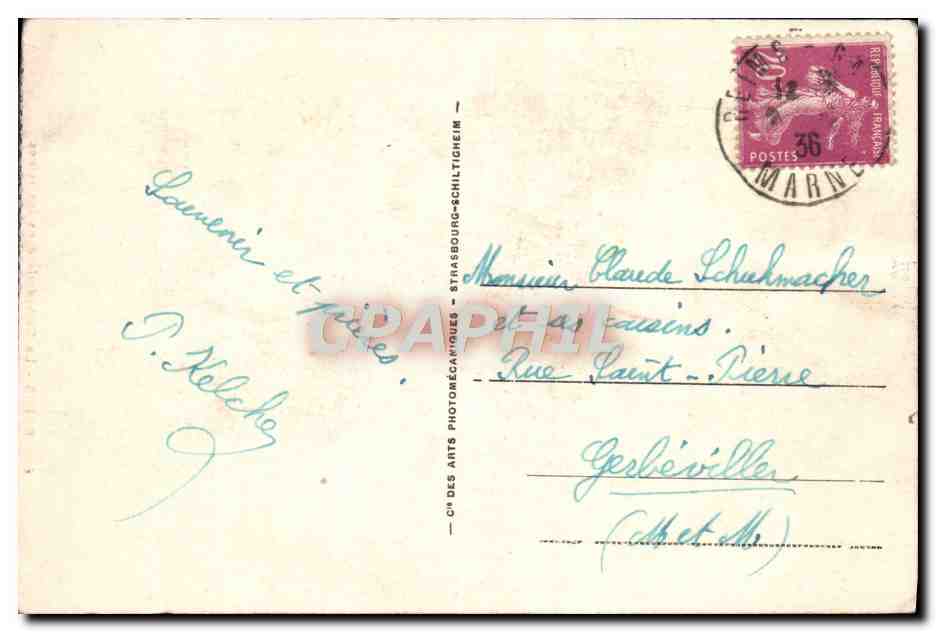 REIMS - GA
12
36
MARNE
20
REPUBLIQUE FRANÇAISE
POSTES
Souvenir et prières.
P. Kelcher
— Cie DES ARTS PHOTOMÉCANIQUES - STRASBOURG-SCHILTIGHEIM —
CPAPHIL
Monsieur Claude Schuhmacher
et ses cousins.
Rue Saint-Pierre
Gerbéviller
(M et M)